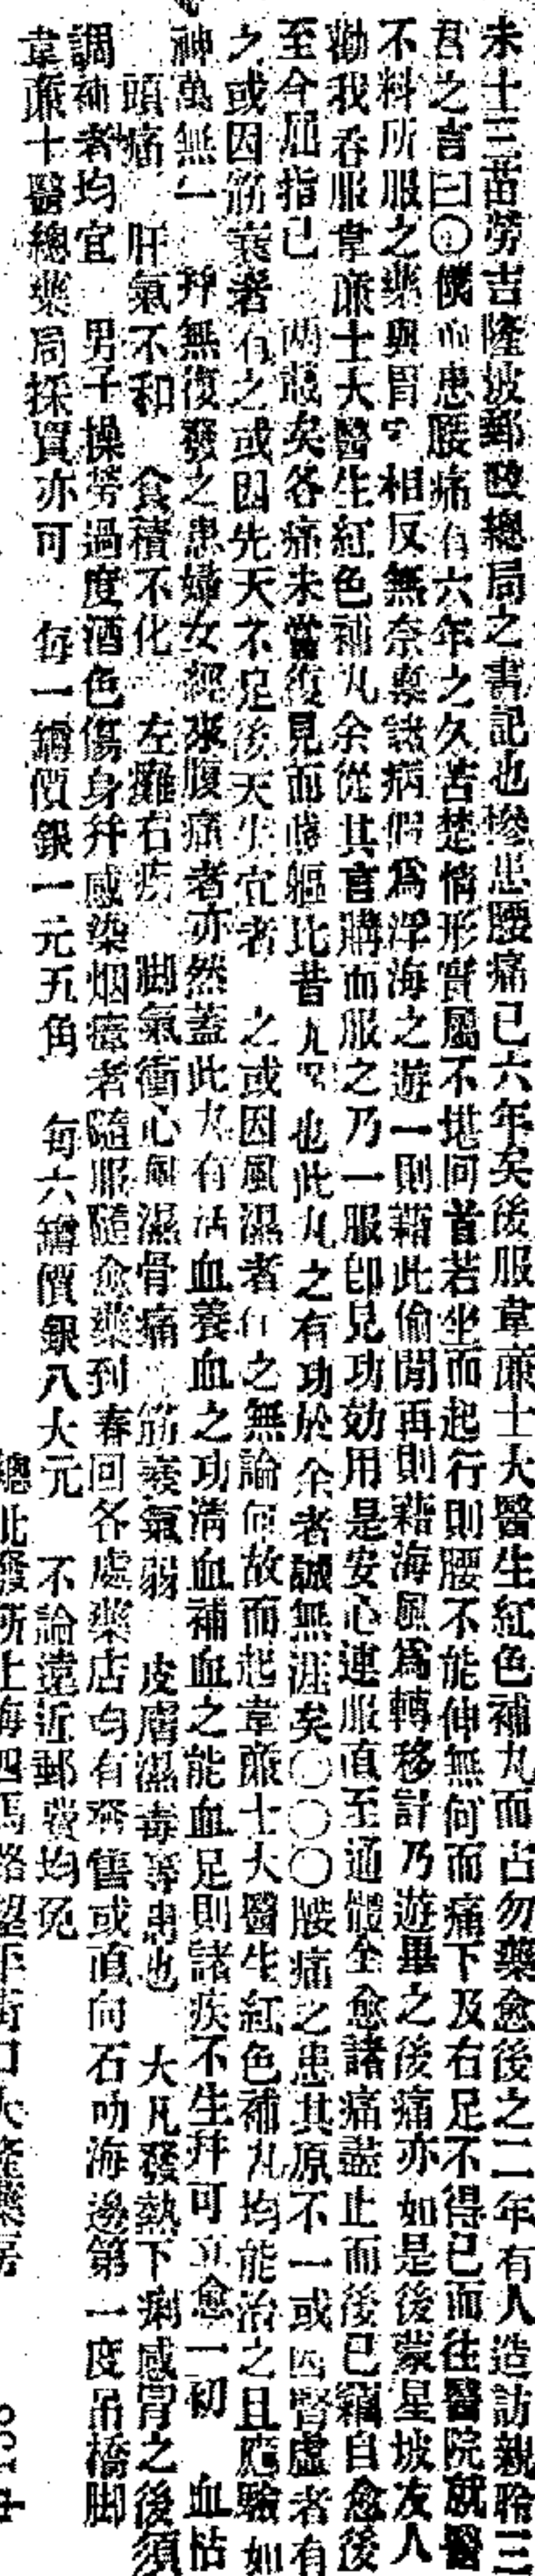 未士三苗勞吉隆坡郵政總局之書記也慘患腰痛已六年矣後服韋廉士大醫生紅色補丸而占勿藥愈後之二年有人造訪親聆三
君之言曰〇僕向患腰痛有六年之久苦楚情形實屬不堪回首若坐而起行則腰不能伸無何而痛下及右足不得已而往醫院就醫
不料所服之藥與胃 相反無奈棄諸病假爲浮海之遊一則藉此偷閒再則藉海風爲轉移計乃遊畢之後痛亦如是後蒙星坡友人
勸我吞服韋廉士大醫生紅色補丸余從其言購而服之乃一服即見功効用是安心連服直至通體全愈諸痛盡止而後已竊自愈後
至今屈指已 兩載矣各痛未嘗復見而賤軀比昔尤 也此丸之有功於余者誠無涯矣〇〇〇腰痛之患其原不一或因腎虛者有
之或因筋衰者有之或因先天不足後天失宜者 之或因風濕者有之無論何故而起韋廉士大醫生紅色補丸均能治之且應驗如
神萬無一 并無復發之患婦女經來腹痛者亦然蓋此丸有活血養血之功清血補血之能血足則諸疾不生并可立愈一切 血枯
頭痛 肝氣不和 食積不化 左癱右瘓 脚氣衝心 風濕骨痛 筋衰氣弱 皮膚濕毒等患也 大凡發熱下痢感冒之後須
調補者均宜 男子操勞過度酒色傷身并感染烟癮者隨服隨愈藥到春回各處藥店均有發售或直向石叻海邊第一度吊橋脚
韋廉士醫總藥局採買亦可 每一罐價銀一元五角 每六罐價銀八大元 不論遠近郵費均免
總批發所上海四馬路望平街口大藥房